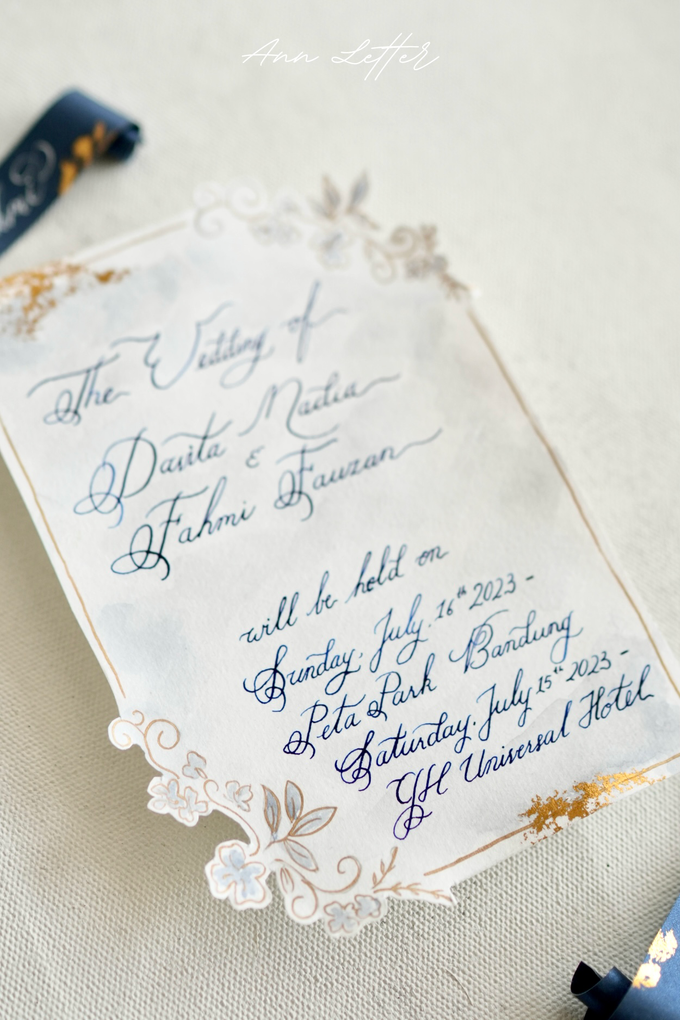 Ann Letter
The Wedding of
Davita Nadia
&
Fahmi Fauzan
will be held on
Sunday, July. 16th 2023 -
Peta Park Bandung
Saturday, July 15th 2023 -
GH Universal Hotel